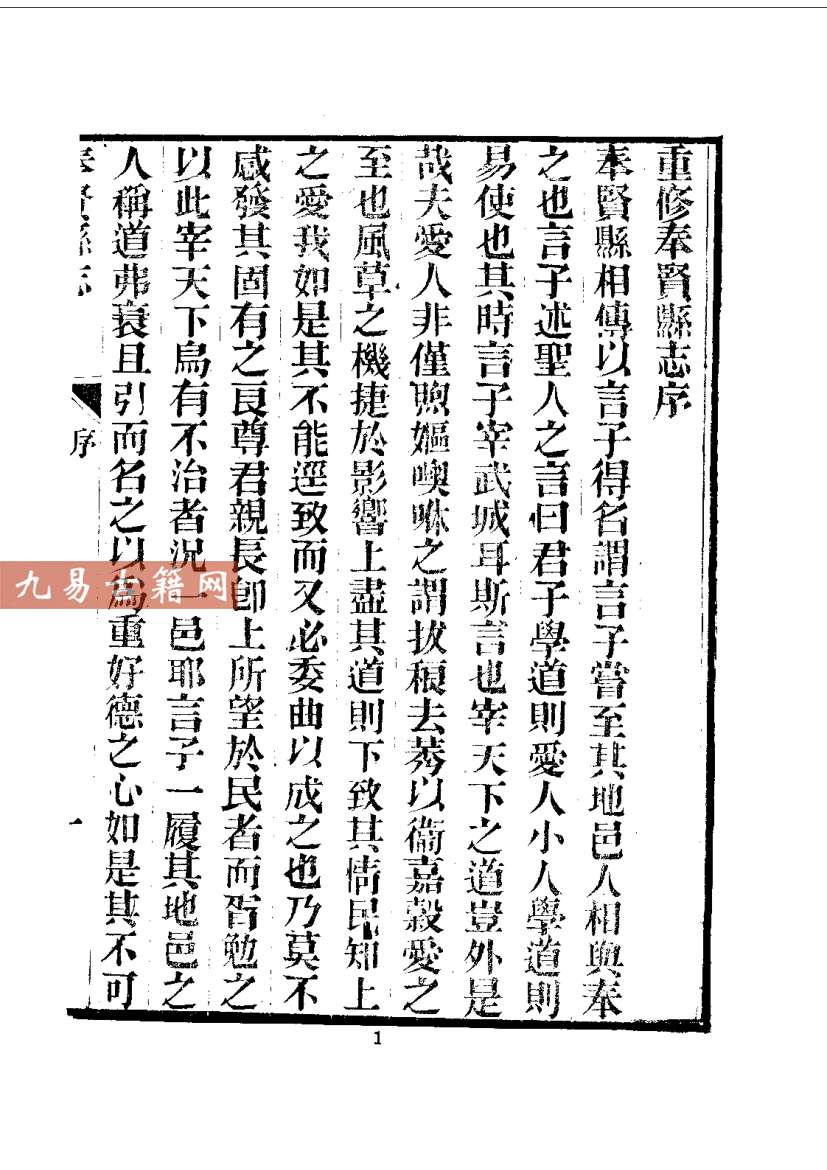 重修奉賢縣志序
奉賢縣相傳以言子得名謂言子嘗至其地邑人相與奉
之也言子述聖人之言曰君子學道則愛人小人學道則
易使也其時言子宰武城耳斯言也宰天下之道豈外是
哉夫愛人非僅煦嫗噢咻之謂拔稂去莠以衞嘉穀愛之
至也風草之機捷於影響上盡其道則下致其情民知上
之愛我如是其不能逕致而又必委曲以成之也乃莫不
感發其固有之良尊君親長卽上所望於民者而胥勉之
以此宰天下烏有不治者況一邑耶言子一履其地邑之
人稱道弗衰且引而名之以爲重好德之心如是其不可
奉賢縣志
序
一
九易古籍网
1